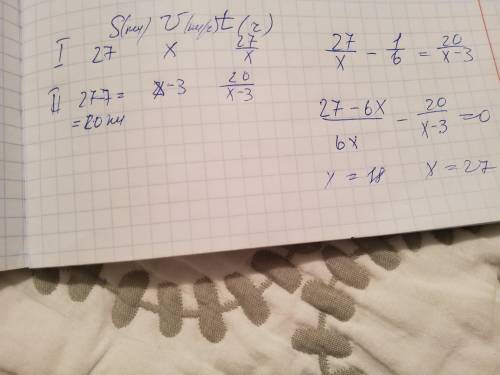 S(км) V(км/г) t(г)
I 27 x 27/x
II 27-7= x-3 20/x-3
=20км
27/x - 1/6 = 20/x-3
27-6x/6x - 20/x-3 =0
x = 18 x = 27